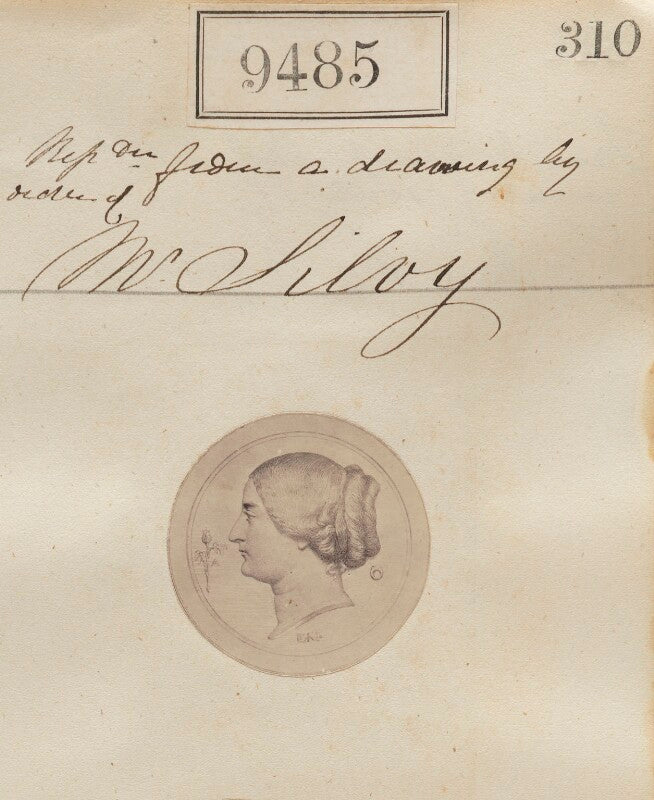 9485
310
Rep^on from a drawing by
order of
Mr. Silvy
6